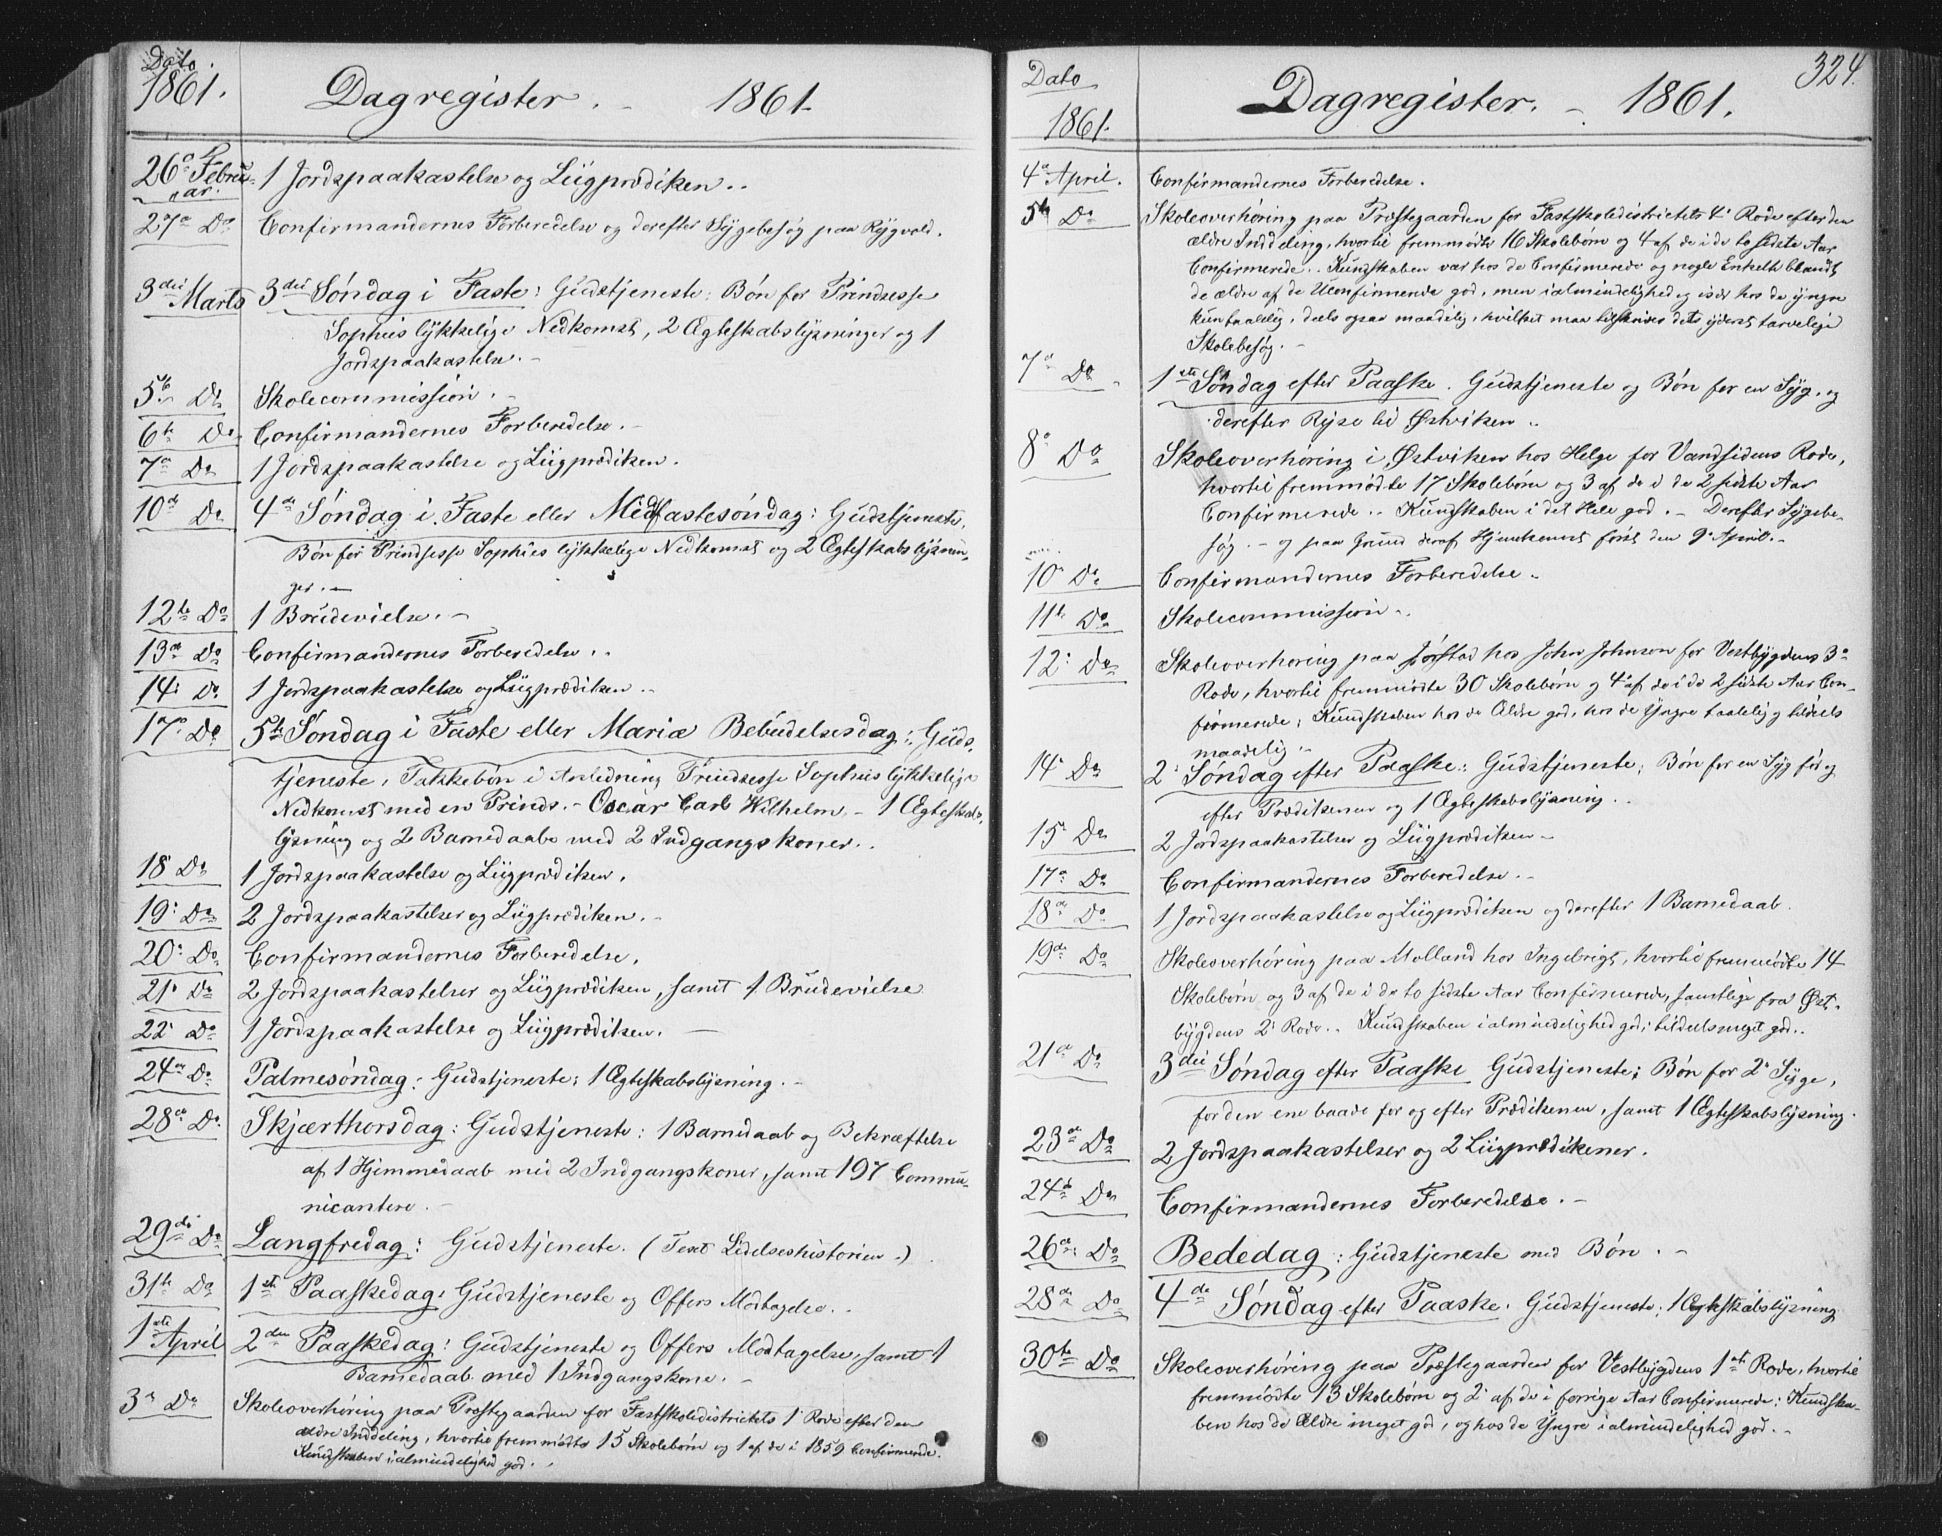 Dato
1861.
Dagregister. - 1861.
26de Februar. 1 Jordspaakastelse og Liigprædiken..
27de Do Confirmandernes Forberedelse og derefter Sygebesøg paa Rygvold.
3die Marts 3die Søndag i Faste: Gudstjeneste: Bøn for Prindsesse
Sophies lykkelige Nedkomst, 2 Ægteskabslysninger og 1
Jordspaakastelse.-
5te Do Skolecommission.-
6te Do Confirmandernes Forberedelse.-
7de Do 1 Jordspaakastelse og Liigprædiken.
10de Do 4de Søndag i Faste eller Midfastesøndag: Gudstjeneste,
Bøn for Prindsesse Sophies lykkelige Nedkomst og 2 Ægteskabslysnin-
ger.-
12te Do 1 Brudevielse.-
13de Do Confirmandernes Forberedelse..
14. Do 1 Jordspaakastelse og Liigprædiken..
17de Do 5te Søndag i Faste eller Mariæ Bebudelsesdag: Guds-
tjeneste, Takkebøn i Anledning Prindsesse Sophies lykkelige
Nedkomst med en Prinds.- Oscar Carl Wilhelm.- 1 Ægteskabs-
lysning og 2 Barnedaabe med 2 Indgangskoner..
18 Do 1 Jordspaakastelse og Liigprædiken.
19. Do 2 Jordspaakastelser og Liigprædiken.-
20. Do Confirmandernes Forberedelse.
21. Do 2 Jordspaakastelser og Liigprædiken, samt 1 Brudevielse
22. Do 1 Jordspaakastelse og Liigprædiken.-
24de Do Palmesøndag: Gudstjeneste; 1 Ægteskabslysning.-
28de Do Skjærthorsdag: Gudstjeneste: 1 Barnedaab og Bekræftelse
af 1 Hjemmedaab med 2 Indgangskoner, samt 197 Commu-
nicantere.-
29de Do Langfredag: Gudstjeneste. (Text Lidelseshistorien.)
31te Do 1ste Paaskedag: Gudstjeneste og Offers Modtagelse..
1ste April 2den Paaskedag: Gudstjeneste og Offers Modtagelse, samt 1
Barnedaab med 1 Indgangskone.-
3de Do Skoleoverhøring paa Præstegaarden for Fastskoledistrictets 1. Rode efter den
ældre Inddeling, hvortil fremmødte 15 Skolebørn og 1 af de i 1859 Confirmerede.
Kundskaben i almindelighed god..
324.
Dato
1861.
Dagregister. - 1861.
4de April. Confirmandernes Forberedelse.
5te Do Skoleoverhøring paa Præstegaarden for Fastskoledistrictets 4. Rode efter den
ældre Inddeling, hvortil fremmødte 16 Skolebørn og 4 af de i de to sidste Aar
Confirmerede.. Kundskaben var hos de Confirmerede og nogle Enkelte blandt
de ældre af de Uconfirmerede god, men i almindelighed og især hos de yngre
kun taalelig, deels ogsaa maadelig, hvilket maa tilskrives dets yderst tarvelige
Skolebesøg.-
7de Do 1ste Søndag efter Paaske. Gudstjeneste og Bøn for en Syg, og
derefter Reyse til Østviken..
8de Do Skoleoverhøring i Østviken hos Helge for Vandsidens Rode,
hvortil fremmødte 17 Skolebørn og 3 af de i de 2 sidste Aar
Confirmerede.. Kundskaben i det Hele god.- Derefter Sygebe-
søg.- og paa Grund deraf Hjemkomst først den 9. April.-
10de Do Confirmandernes Forberedelse..
11te Do Skolecommission..
12. Do Skoleoverhøring paa Jørstad hos John Johnsen for Vestbygdens 3de
Rode, hvortil fremmødte 30 Skolebørn og 4 af de i de 2 sidste Aar Con-
firmerede; Kundskaben hos de Ældre god, hos de Yngre taalelig og tildeels
maadelig.-
14. Do 2. Søndag efter Paaske: Gudstjeneste; Bøn for en Syg før og
efter Prædikenen og 1 Ægteskabslysning..
15de Do 2 Jordspaakastelser og Liigprædiken-
17de Do Confirmandernes Forberedelse.-
18de Do 1 Jordspaakastelse og Liigprædiken og derefter 1 Barnedaab.
19de Do Skoleoverhøring paa Molland hos Ingebrigt, hvortil fremmødte 14
Skolebørn og 3 af de i de to sidste Aar Confirmerede, samtlige fra Øst-
bygdens 2. Rode.. Kundskaben i almindelighed god; tildeels meget god..
21de Do 3die Søndag efter Paaske Gudstjeneste; Bøn for 2. Syge,
for den ene baade før og efter Prædikenen, samt 1 Ægteskabslysning.
23de Do 2 Jordspaakastelser og 2 Liigprædikener.
24de Do Confirmandernes Forberedelse.-
26de Do Bededag: Gudstjeneste med Bøn.-
28de Do 4de Søndag efter Paaske. Gudstjeneste; 1 Ægteskabslysning
30te Do Skoleoverhøring paa Præstegaarden for Vestbygdens 1ste Rode, hvortil
fremmødte 13 Skolebørn og 2. af de i forrige Aar Confirmerede: Kundska-
ben hos de Ældre meget god, og hos de Yngre i almindelighed god.-